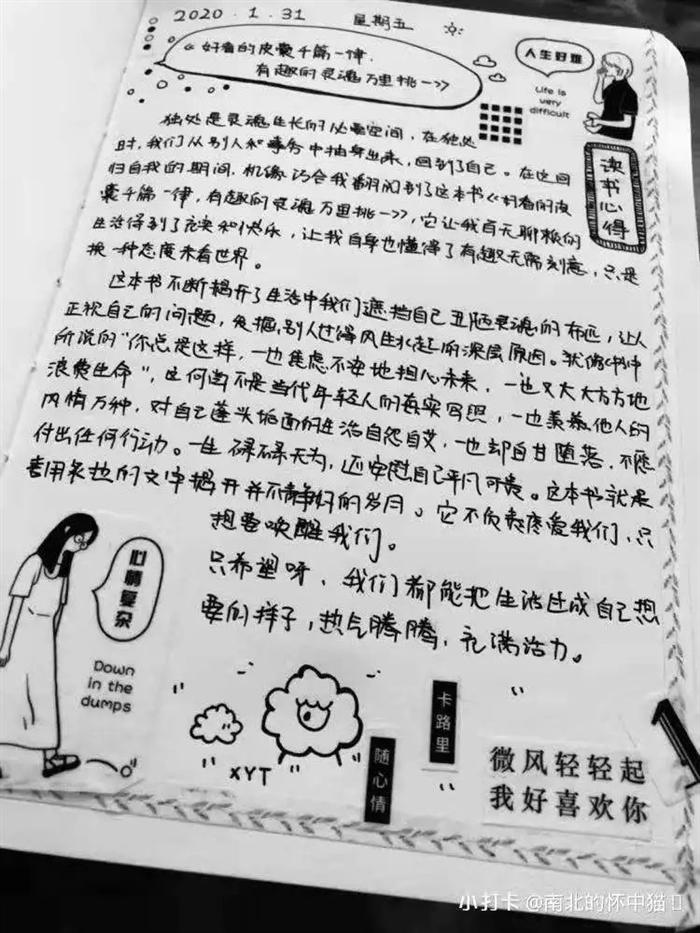 2020.1.31 星期五
《好看的皮囊千篇一律,
有趣的灵魂万里挑一》
人生好难
Life is
very
difficult
读书心得
独处是灵魂生长的必要空间,在独处
时,我们从别人和事务中抽身出来,回到了自己。在这回
归自我的期间,机缘巧合我翻阅到了这本书《好看的皮
囊千篇一律,有趣的灵魂万里挑一》,它让我百无聊赖的
生活得到了充实和快乐,让我自身也懂得了有趣无需刻意,只是
换一种态度来看世界。
这本书不断揭开了生活中我们遮挡自己丑陋灵魂的布匹,让人
正视自己的问题,发掘别人过得风生水起的深层原因。就像书中
所说的"你总是这样,一边焦虑不安地担心未来,一边又大大方方地
浪费生命",这何尝不是当代年轻人的真实写照,一边羡慕他人的
风情万种,对自己蓬头垢面的生活自怨自艾,一边却自甘堕落,不愿
付出任何行动。一生碌碌无为,还安慰自己平凡可贵。这本书就是
善用犀利的文字揭开并不静好的岁月。它不负责疼爱我们,只
想要唤醒我们。
只希望呀,我们都能把生活过成自己想
要的样子,热气腾腾,充满活力。
心情复杂
Down
in the
dumps
XYT
随心情
卡路里
1
微风轻轻起
我好喜欢你
小打卡 @南北的怀中猫